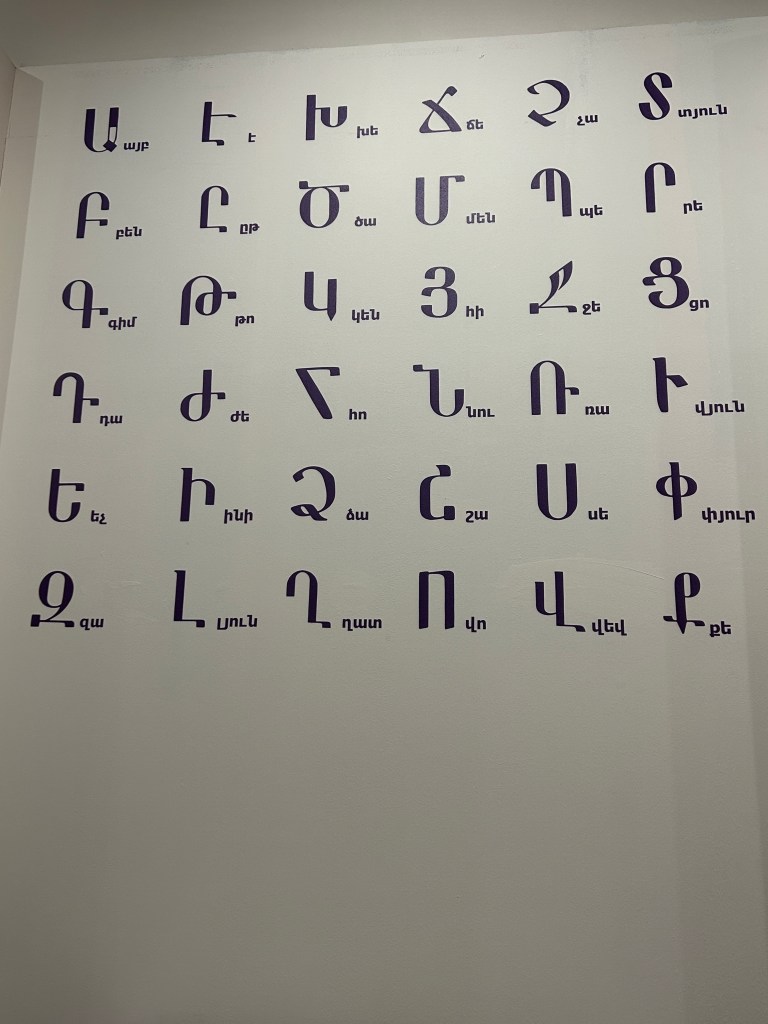 Ա այբ Է է Խ խե Ճ ճե Չ չա Տ տյուն
Բ բեն Ը ըթ Ծ ծա Մ մեն Պ պե Ր րե
Գ գիմ Թ թո Կ կեն Յ հի Ջ ջե Ց ցո
Դ դա Ժ ժե Հ հո Ն նու Ռ ռա Ւ վյուն
Ե եչ Ի ինի Ձ ձա Շ շա Ս սե Փ փյուր
Զ զա Լ լյուն Ղ ղատ Ո վո Վ վեվ Ք քե